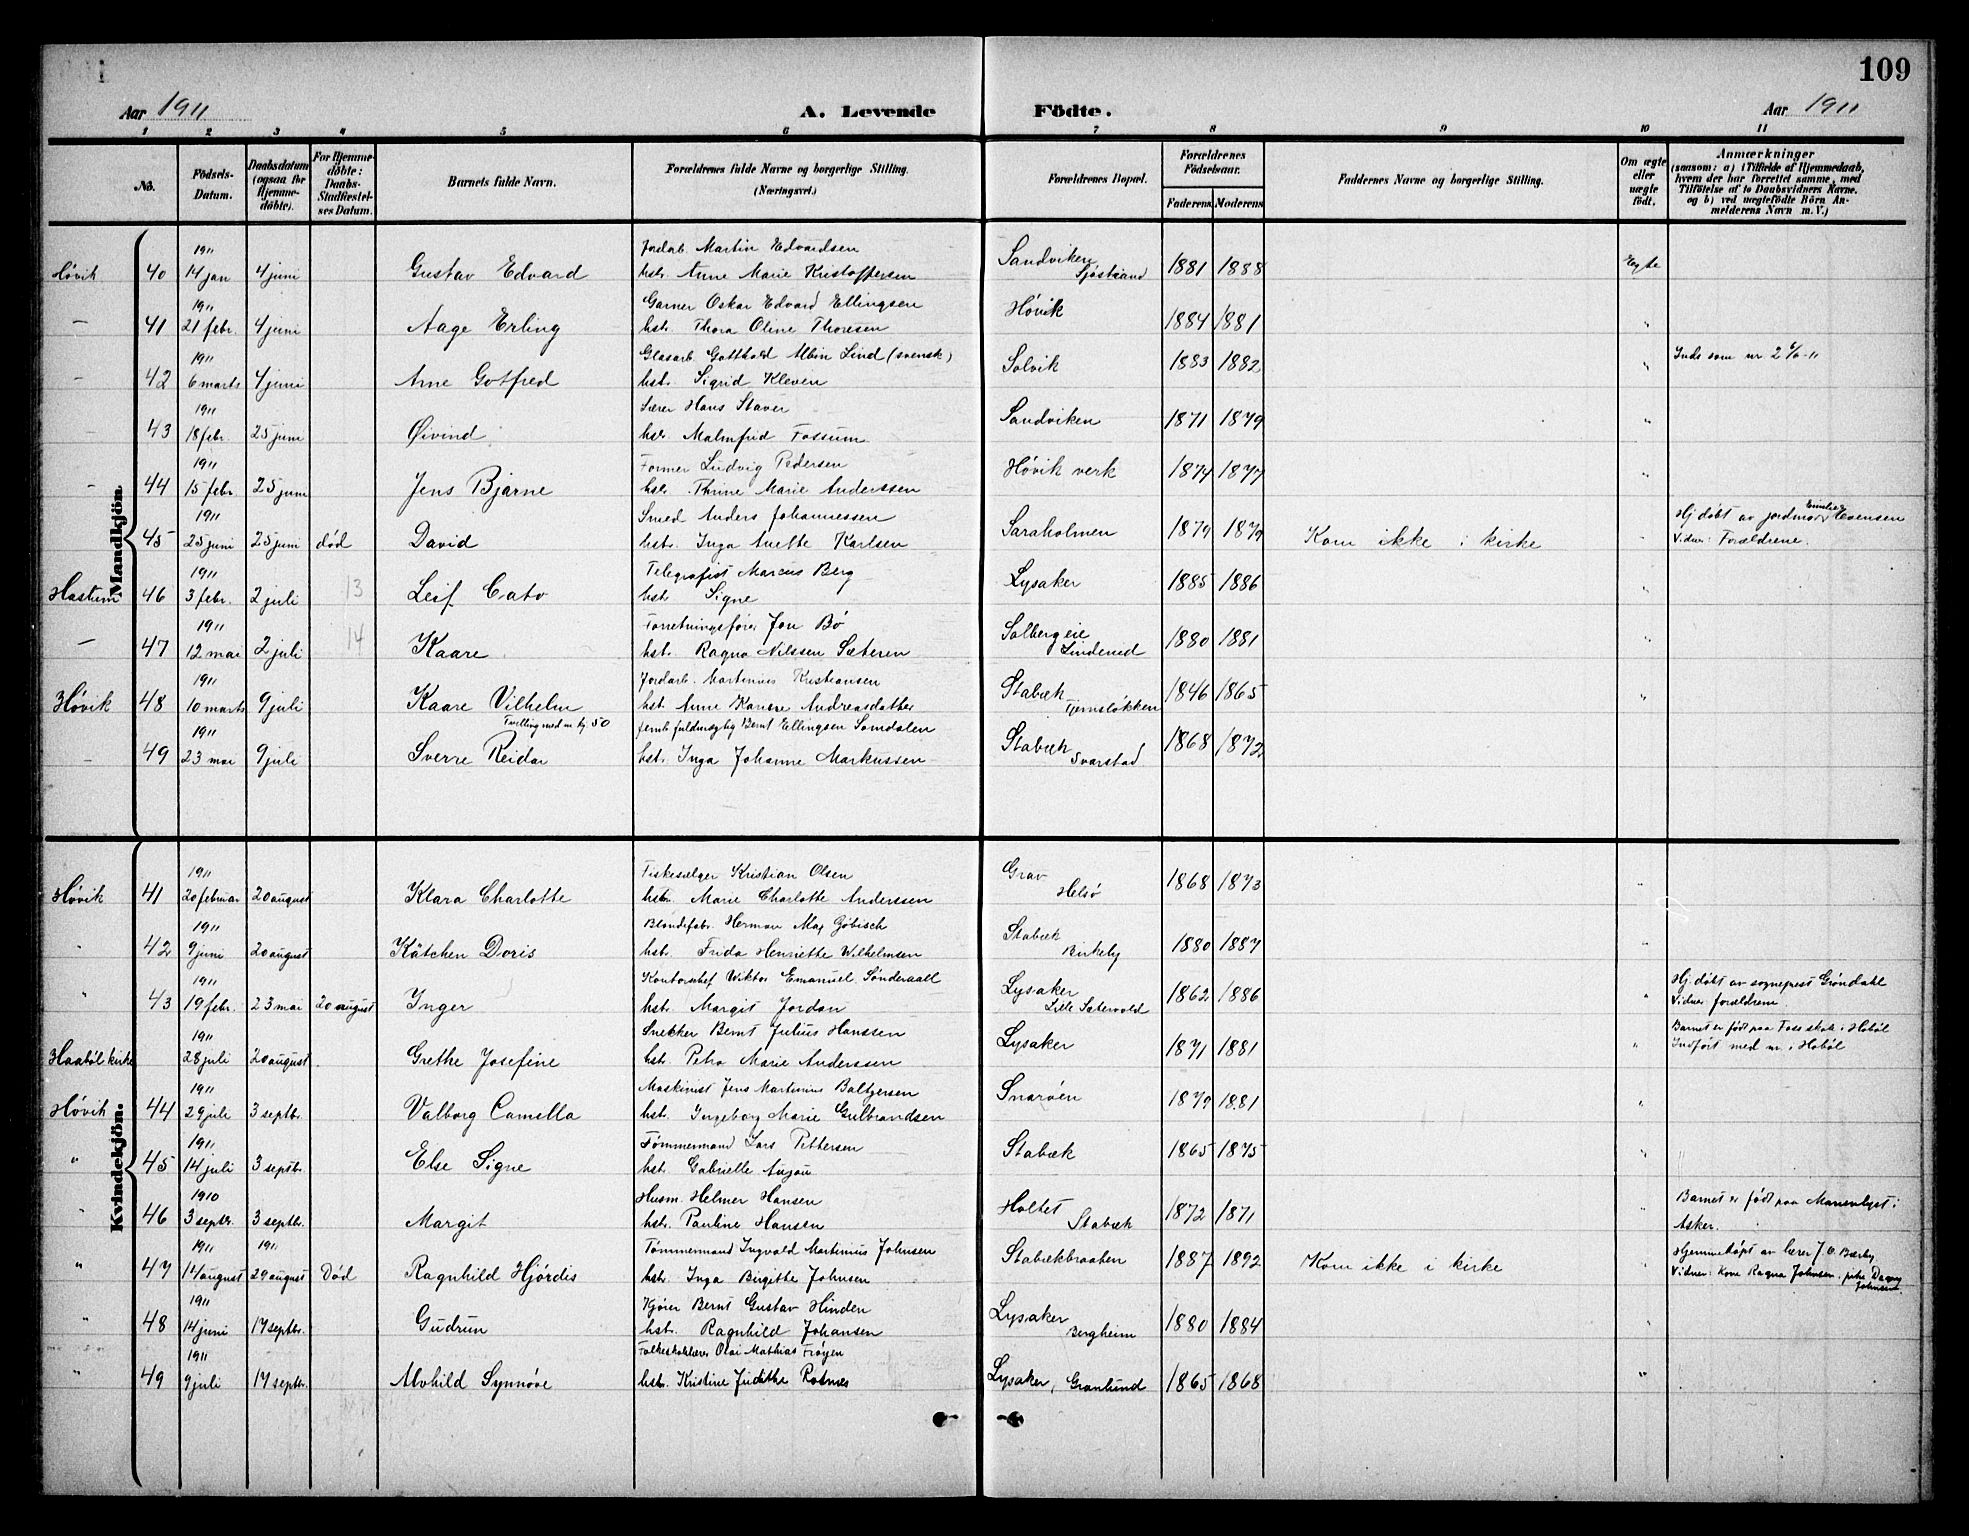 109
Aar 1911 A. Levende Födte. Aar 1911
1 2 3 4 5 6 7 8 9 10 11
No. Födsels-Datum. Daabsdatum (ogsaa for Hjemme-döbte). For Hjemme-döbte: Daabs-Stadfæstel-ses Datum. Barnets fulde Navn. Forældrenes fulde Navne og borgerlige Stilling. (Næringsvei.) Forældrenes Bopæl. Forældrenes Födselsaar. Faderens Moderens Faddernes Navne og borgerlige Stilling. Om ægte eller uægte födt. Anmærkninger (saasom: a) i Tilfælde af Hjemmedaab, hvem der har forrettet samme, med Tilföielse af to Daabsvidners Navne. og b) ved uægtefödte Börn An-melderens Navn m. V.)
Mandkjön
1911 Jordarb. Martin Edvardsen Sandviken
Høvik 40 14 jan 4 juni Gustav Edvard hstr. Anne Marie Kristoffersen Sjøstrand 1881 1888 Egte
1911 Garver Oskar Edvard Ellingsen Høvik
— 41 21 febr. 4 juni Aage Erling hstr. Thora Oline Thoresen 1884 1881 "
1911 Glasarb. Gotthold Albin Lind (svensk) Solvik 1883 1882 Inds som nr 2
— 42 6 marts 4 juni Arne Gotfred hst. Sigrid Kleven "
1911 Lærer Hans Staver Sandviken 1871 1879
— 43 18 febr. 25 juni Øivind hstr. Malmfrid Fossum "
1911 Former Ludvig Pedersen Høvik verk 1874 1877
— 44 15 febr. 25 juni Jens Bjarne hstr. Thrine Marie Anderssen "
1911 Smed Anders Johannessen Saraholmen 1879 1879 Hj. døbt av jordmor Evensen
45 25 juni 25 juni død David hst. Inga Anette Karlsen Kom ikke i kirke " Vidner: Forældrene.
1911 Telegrafist Marcus Berg Lysaker 1885 1886
Haslum 46 3 febr. 2 juli 13 Leif Cato hst. Signe "
1911 Forretningsfører Jon Bø Solberg eie 1880 1881
— 47 12 mai 2 juli 14 Kaare hst. Ragna Nilssen Sæteren Lindened "
1911 Jordarb. Martinius Kristiansen Stabæk 1846 1865
Høvik 48 10 marts 9 juli Kaare Vilhelm hst. Anne Karine Andreasdatter Tjernsløkken "
Tvilling med nr kj 50
1911 Jernb fuldmægtig Bernt Ellingsen Somdalen Stabæk 1868 1872
— 49 23 mai 9 juli Sverre Reidar hst. Inga Johanne Markussen Svarstad
Kvindekjön.
1911 Fiskesælger Kristian Olsen Grav 1868 1873
Høvik 41 20 februar 20 august Klara Charlotte hstr. Marie Charlotte Anderssen Helsø "
1911 Blondefabr. Herman Max Göbisch Stabæk 1880 1887
" 42 9 juni 20 august Kätchen Doris hst. Frida Henriette Wilhelmsen Birkeby "
1911 Kontorchef Wiktor Emanuel Sønderaall Lysaker 1862 1886 Hj. døbt av sogneprest Grøndahl
" 43 19 febr. 23 mai 20 august Inger hst. Margit Jordan Lille Sætervold " Vidner forældrene.
1911 Snekker Bernt Julius Hanssen Lysaker 1871 1881 Barnet er født paa Foss skole i Hobøl
Haabøl kirke 28 juli 20 august. Grethe Josefine hst. Petra Marie Anderssen " Indført med nr. i Hobøl
1911 Maskinist Jens Martinius Baltzersen Snarøen 1879 1881
Høvik 44 29 juli 3 septbr. Valborg Camella hst. Ingeborg Marie Gulbrandsen "
1911 Tømmermand Lars Pettersen Stabæk 1865 1875
" 45 14 juli 3 septbr. Else Signe hst. Gabrielle Anjou "
1910 Husm. Helmer Hansen Holtet 1872 1871 Barnet er født paa Marienlyst i
" 46 3 septr. 3 septbr. Margit hst. Pauline Hansen Stabæk Asker.
1911 1911 Tømmermand Ingvald Martinius Johnsen Stabækbraaten 1887 1892 Hjemmedøpt av lærer J. O. Bærby
" 47 14 august 29 august Død Ragnhild Hjørdis hst. Inga Birgitte Johnsen Kom ikke i kirke " Vidner: Kone Ragna Johnsen, pike Dagny Johnsen.
1911 Kjører Bernt Gustav Hinden Lysaker 1880 1884
" 48 14 juni 17 septbr. Gudrun hst. Ragnhild Johansen Bergheim "
1911 Folkeskolelærer Olai Mathias Frøyen
" 49 9 juli 17 septbr. Alvhild Synnøve hst. Kristine Judithe Rotnes Lysaker, Granlund 1865 1868 "